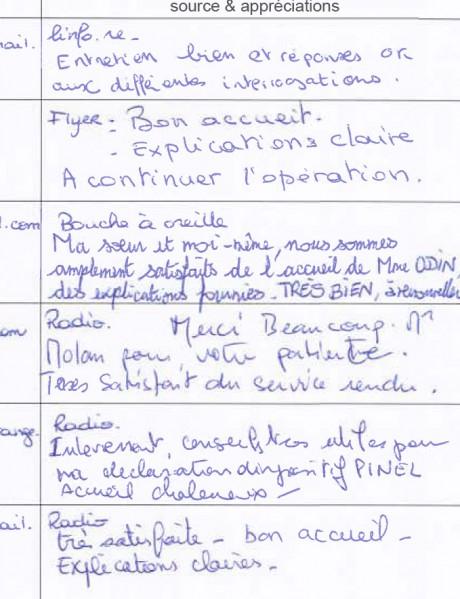 source & appréciations
ail. linfo.re -
Entretien bien et réponses ok
aux différentes interrogations.
Flyer : - Bon accueil.
- Explications claire
A continuer l'opération.
l.com Bouche à oreille
Ma sœur et moi-même, nous sommes
amplement satisfaits de l'accueil de Mme ODIN,
des explications fournies. TRÈS BIEN, à renouveller
om Radio. Merci Beaucoup. Mr
Molan pour votre patience.
Très Satisfait du service rendu.
ange. Radio.
Intervenant, conseils très utiles pour
ma declaration dispositif PINEL
Accueil chaleureux -
ail. Radio
très satisfaite - bon accueil -
Explications claires -